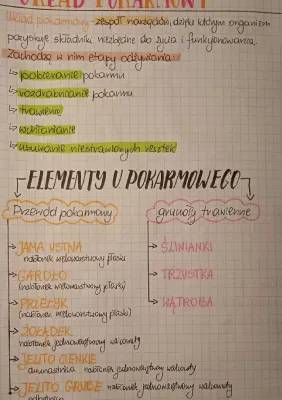 UKŁAD POKARMOWY
Układ pokarmowy - zespół narządów, dzięki którym organizm
pozyskuje składniki niezbędne do życia i funkcjonowania.
Zachodzą w nim etapy odżywiania:
↳ pobieranie pokarmu
↳ rozdrabnianie pokarmu
↳ trawienie
↳ wchłanianie
↳ usuwanie niestrawionych resztek
ELEMENTY U. POKARMOWEGO
Przewód pokarmowy
gruczoły trawienne
→ JAMA USTNA
nabłonek wielowarstwowy płaski
→ GARDŁO
(nabłonek wielowarstwowy płaski)
→ PRZEŁYK
(nabłonek wielowarstwowy płaski)
→ ŻOŁĄDEK
nabłonek jednowarstwowy walcowaty
→ JELITO CIENKIE
dwunastnica nabłonek jednowarstwowy walcowaty
→ JELITO GRUBE nabłonek jednowarstwowy walcowaty
→ ŚLINIANKI
→ TRZUSTKA
→ WĄTROBA